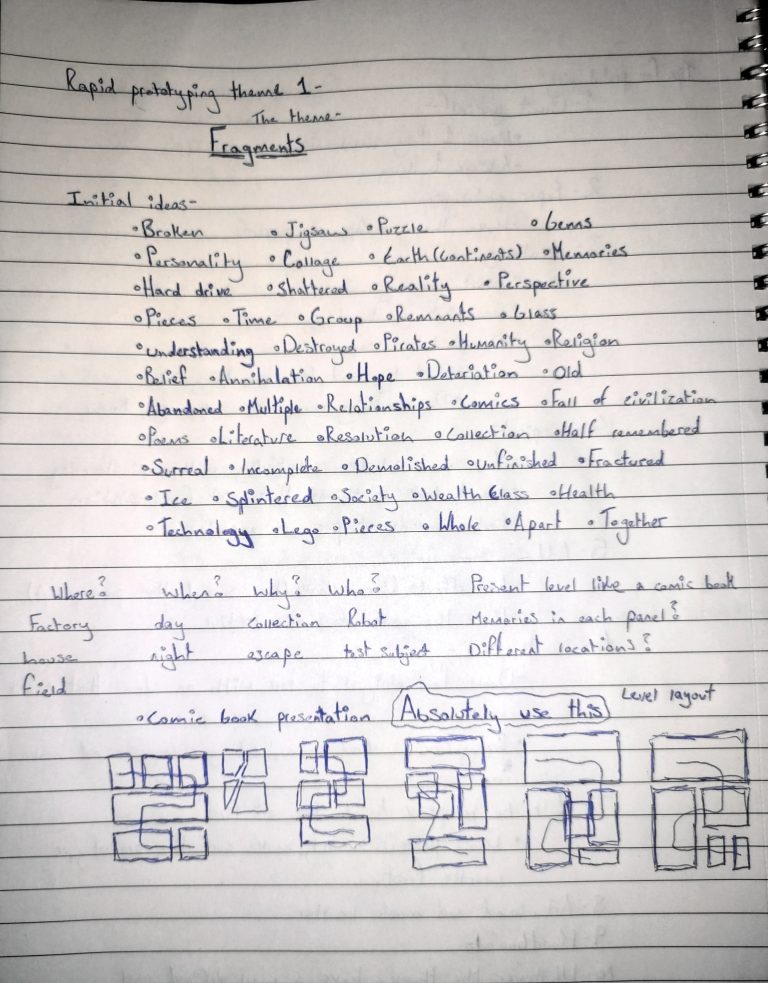 Rapid prototyping theme 1-
The theme-
Fragments
Initial ideas-
•Broken •Jigsaw •Puzzle •Gems
•Personality •Collage •Earth (Continents) •Memories
•Hard drive •Shattered •Reality •Perspective
•Pieces •Time •Group •Remnants •Glass
•understanding •Destroyed •Pirates •Humanity •Religion
•Belief •Annihalation •Hope •Deteriation •Old
•Abandoned •Multiple •Relationships •Comics •Fall of civilization
•Poems •Literature •Resolution •Collection •Half remembered
•Surreal •Incomplete •Demolished •unfinished •Fractured
•Ice •Splintered •Society •Wealth Class •Health
•Technology •Lego •Pieces •Whole •Apart •Together
Where? When? Why? Who? Present level like a comic book
Factory day Collection Robot Memories in each panel?
house night escape test subject Different locations?
field
•Comic book presentation Absolutely use this Level layout